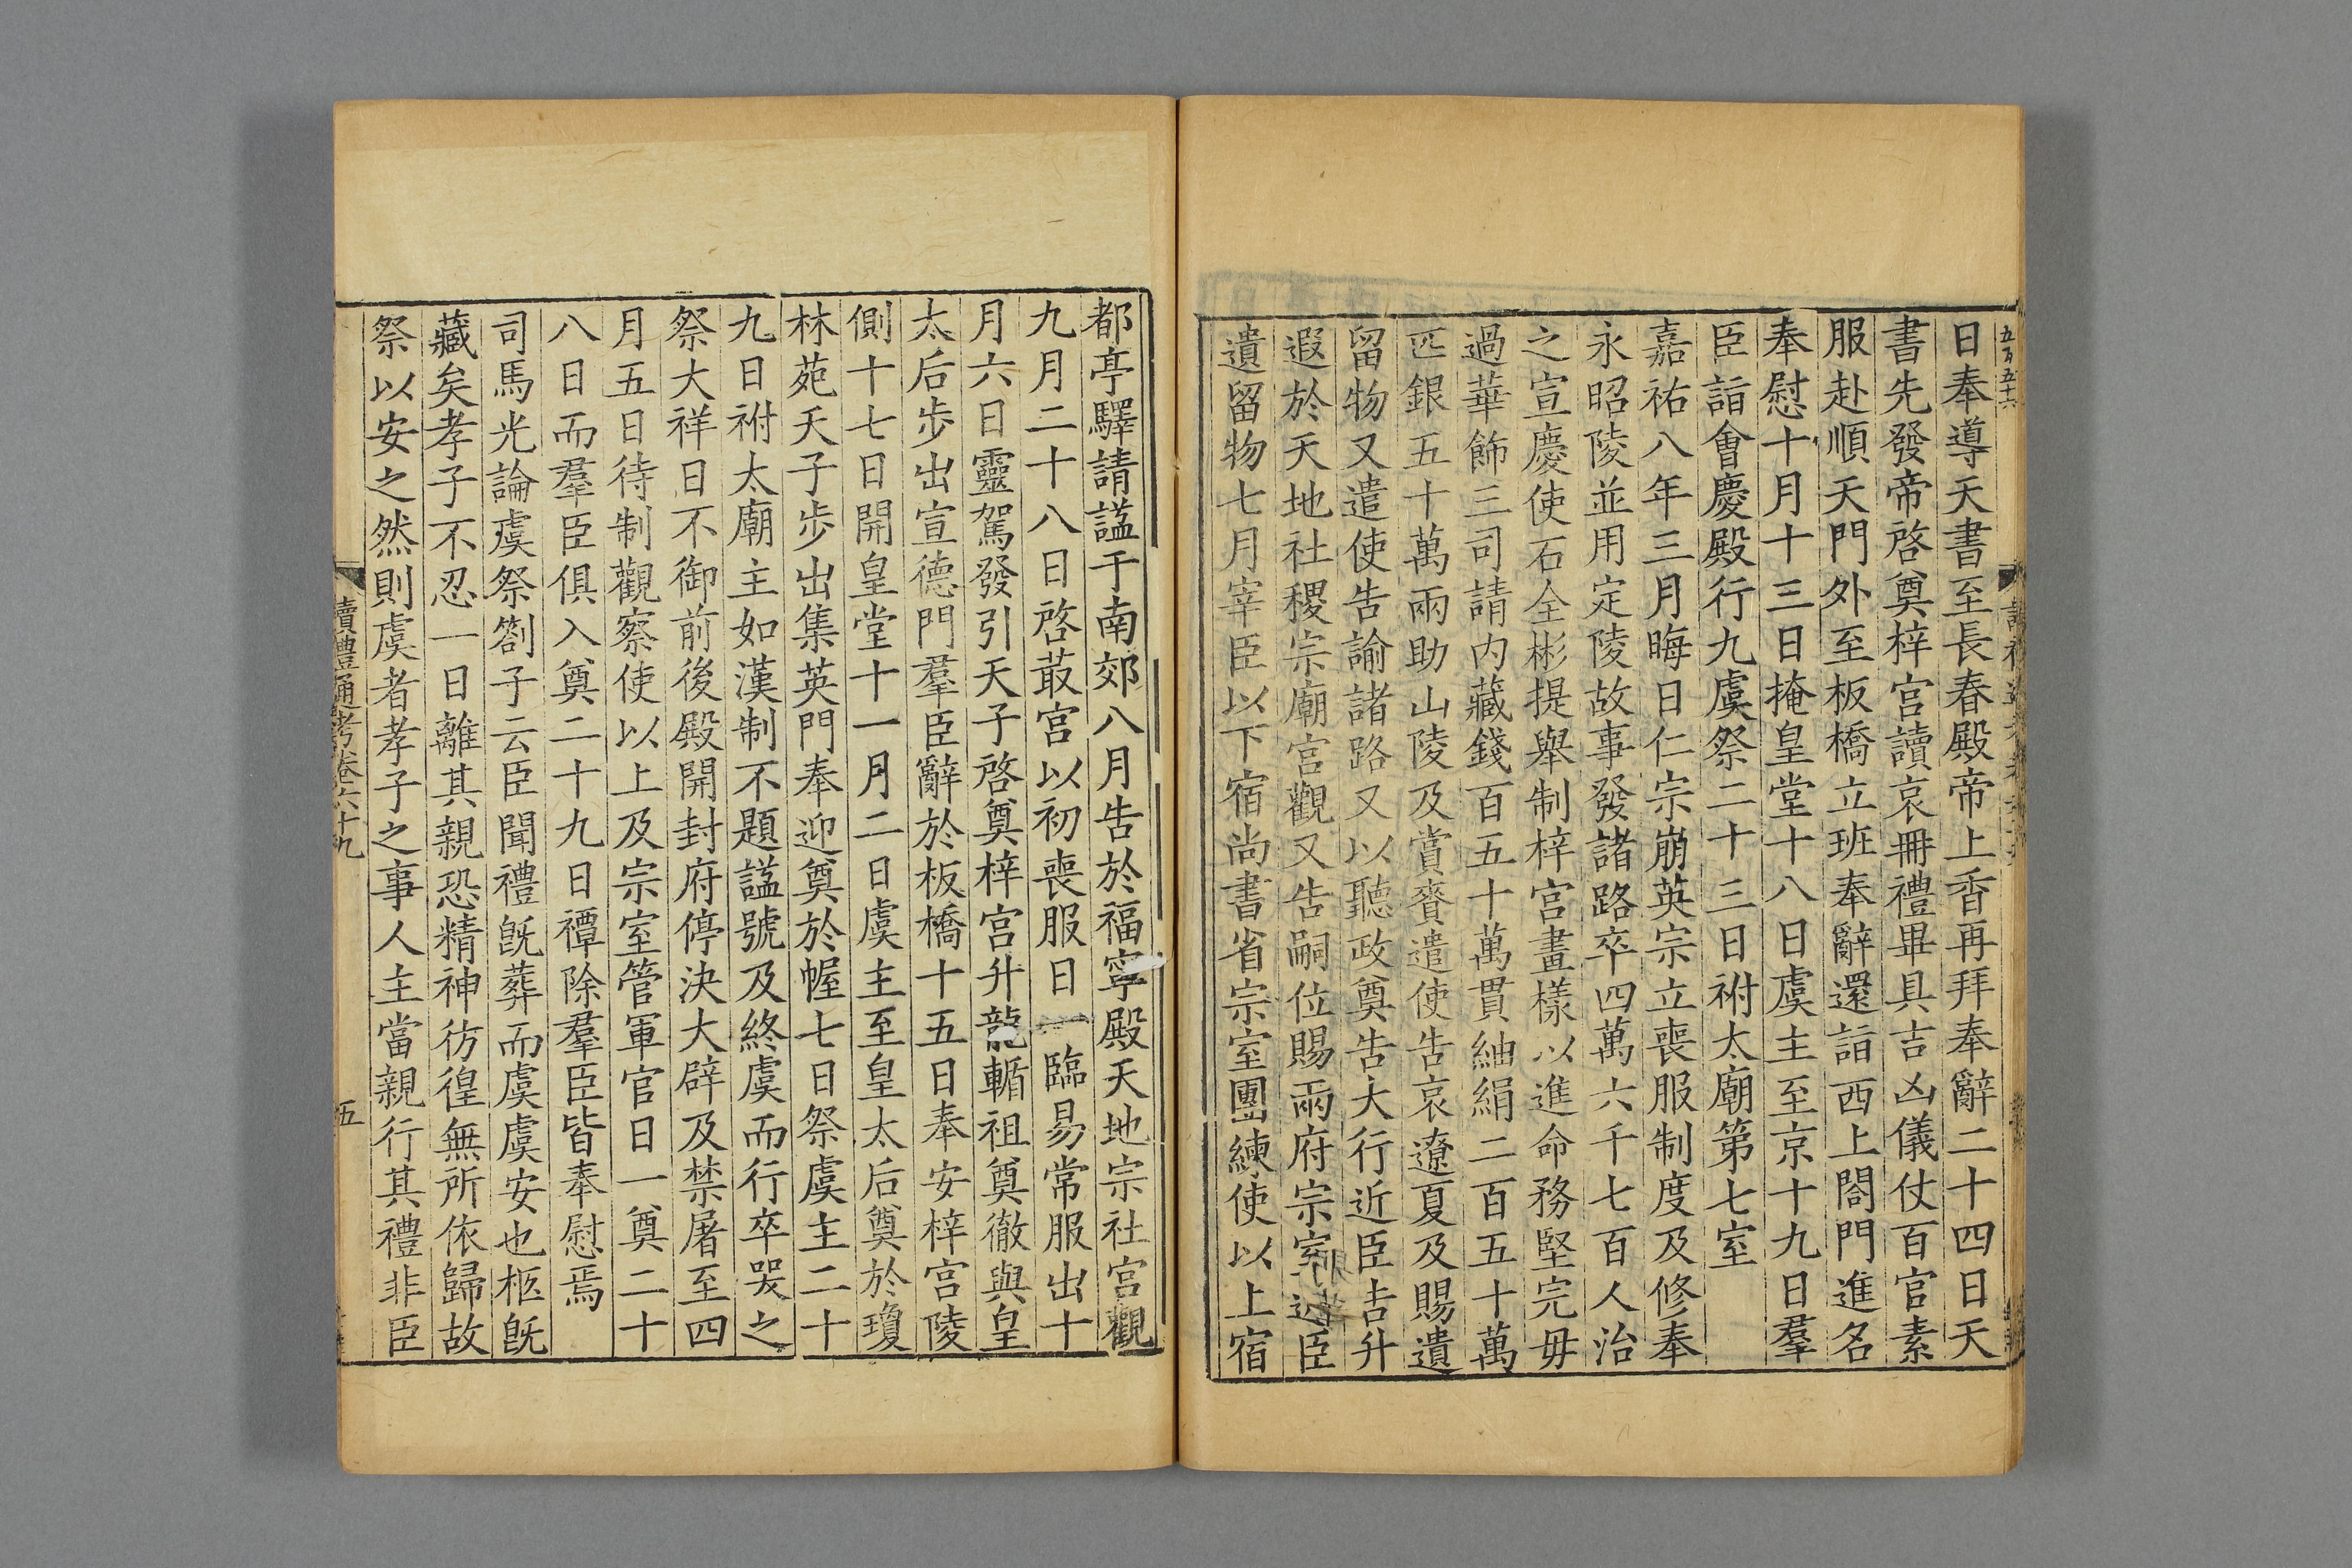 日奉導天書至長春殿帝上香再拜奉辭二十四日天
書先發帝啓奠梓宮讀哀冊禮畢具吉凶儀仗百官素
服赴順天門外至板橋立班奉辭還詣西上閤門進名
奉慰十月十三日掩皇堂十八日虞主至京十九日羣
臣詣會慶殿行九虞祭二十三日祔太廟第七室
嘉祐八年三月晦日仁宗崩英宗立喪服制度及修奉
永昭陵並用定陵故事發諸路卒四萬六千七百人治
之宣慶使石全彬提舉制梓宮畫樣以進命務堅完毋
過華飾三司請內藏錢百五十萬貫紬絹二百五十萬
匹銀五十萬兩助山陵及賞賚遣使告哀遼夏及賜遺
留物又遣使告諭諸路又以聽政奠告大行近臣告升
遐於天地社稷宗廟宮觀又告嗣位賜兩府宗室近臣
遺留物七月宰臣以下宿尚書省宗室團練使以上宿
都亭驛請謚于南郊八月告於福寧殿天地宗社宮觀
九月二十八日啓菆宮以初喪服日一臨易常服出十
月六日靈駕發引天子啓奠梓宮升龍輴祖奠徹與皇
太后步出宣德門羣臣辭於板橋十五日奉安梓宮陵
側十七日開皇堂十一月二日虞主至皇太后奠於瓊
林苑天子步出集英門奉迎奠於幄七日祭虞主二十
九日祔太廟主如漢制不題謚號及終虞而行卒哭之
祭大祥日不御前後殿開封府停決大辟及禁屠至四
月五日待制觀察使以上及宗室管軍官日一奠二十
八日而羣臣俱入奠二十九日禫除羣臣皆奉慰焉
司馬光論虞祭劄子云臣聞禮旣葬而虞虞安也柩旣
藏矣孝子不忍一日離其親恐精神彷徨無所依歸故
祭以安之然則虞者孝子之事人主當親行其禮非臣
讀禮通考卷六十九
五